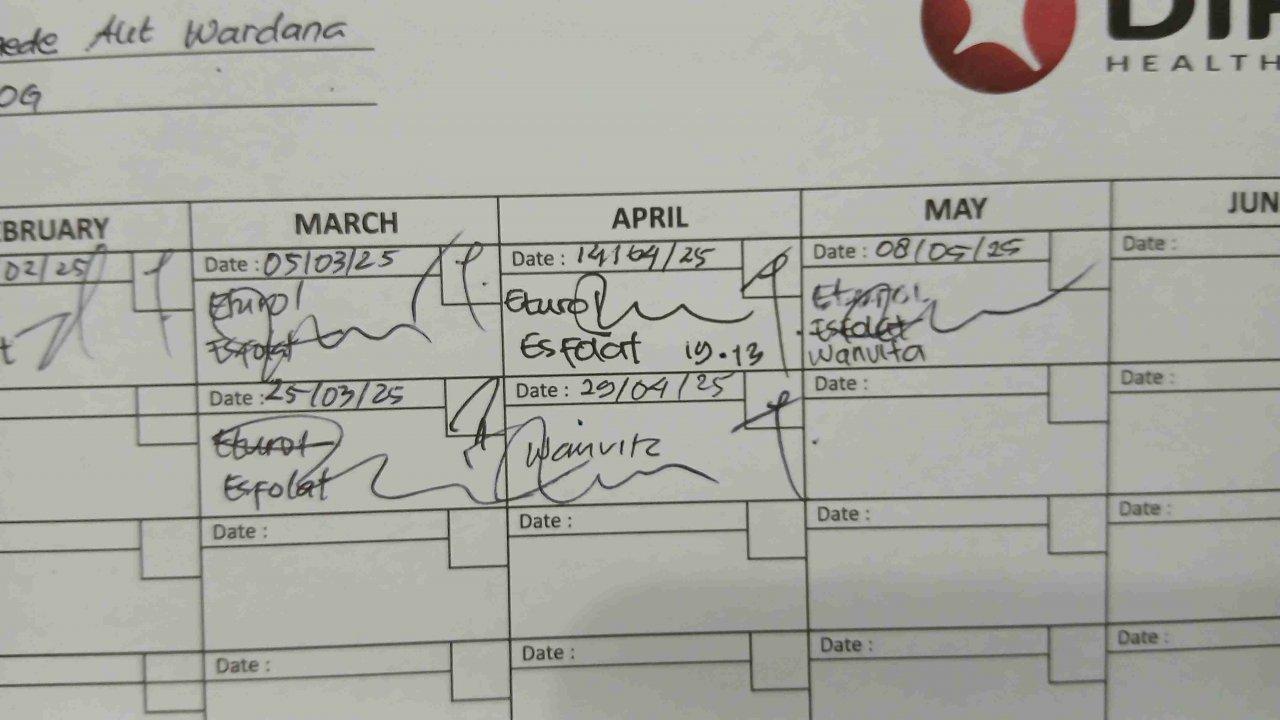 Alit Wardana
OG
HEALTH
BRUARY MARCH APRIL MAY JUN
02/25 Date : 05/03/25 Date : 14/04/25 Date : 08/05/25 Date :
Eturol Eturol Eturol
Esfolat Esfolat 19.13 Esfolat
Wanvita
Date : 25/03/25 Date : 29/04/25 Date : Date :
Eturol Wanvita
Esfolat
Date : Date : Date : Date :
Date : Date : Date : Date :